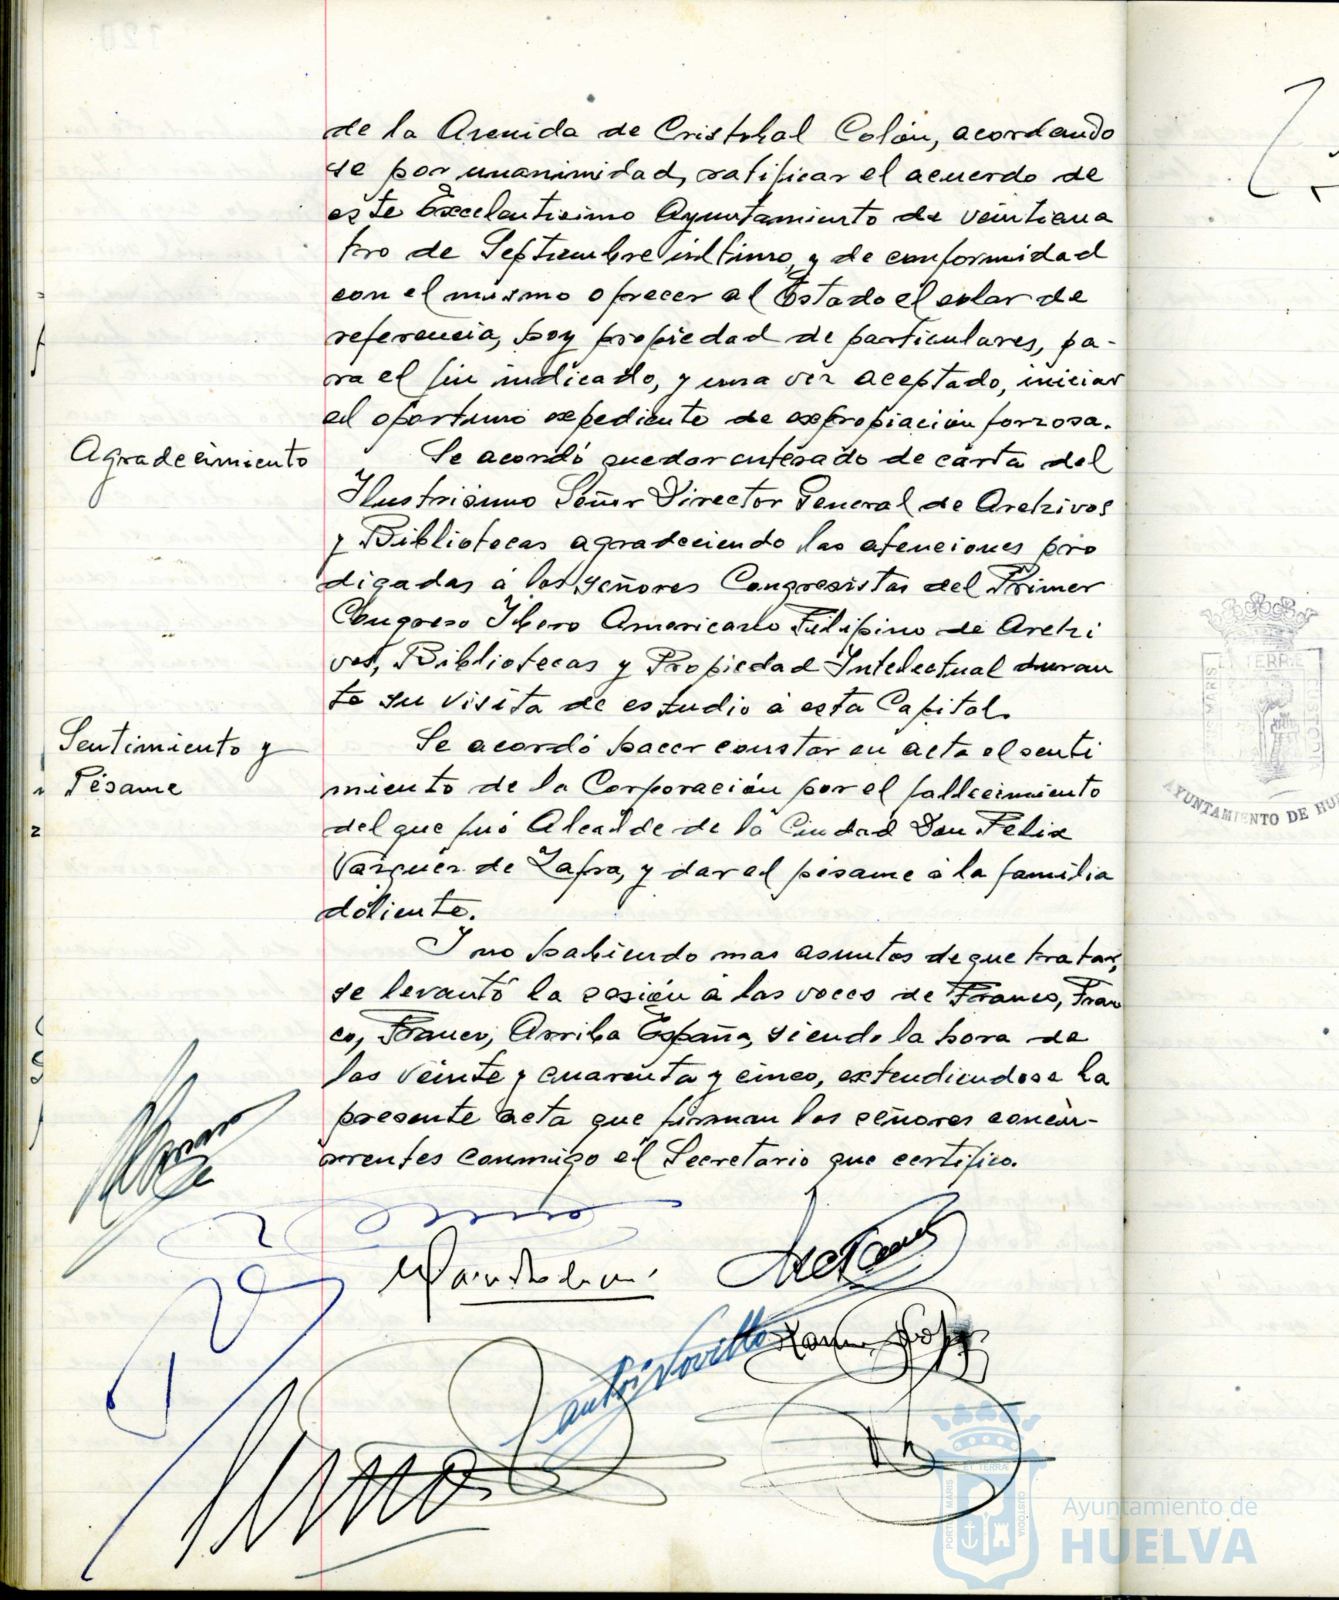 de la Avenida de Cristobal Colón, acordando
se por unanimidad, ratificar el acuerdo de
este Excelentisimo Ayuntamiento de veinticua
tro de Septiembre último, y de conformidad
con el mismo ofrecer al Estado el solar de
referencia, hoy propiedad de particulares, pa-
ra el fin indicado, y una vez aceptado, iniciar
el oportuno expediente de expropiación forzosa.
Agradecimiento
Se acordó quedar enterado de carta del
Ilustrisimo Señor Director General de Archivos
y Bibliotecas agradeciendo las atenciones pro
digadas á los señores Congresistas del Primer
Congreso Ibero Americano Filipino de Archi
vos, Bibliotecas y Propiedad Intelectual duran
te su visita de estudio á esta Capital.
Sentimiento y
Pésame
Se acordó hacer constar en acta el senti
miento de la Corporación por el fallecimiento
del que fué Alcalde de la Ciudad Don Felix
Vazquez de Zafra, y dar el pésame á la familia
doliente.
Y no habiendo mas asuntos de que tratar,
se levantó la sesión á las voces de Franco, Fran
co, Franco, Arriba España, siendo la hora de
las veinte y cuarenta y cinco, extendiendose la
presente acta que firman los señores concu-
rrentes conmigo el Secretario que certifico.
Antº Novillo
AYUNTAMIENTO DE HU
Ayuntamiento de
HUELVA